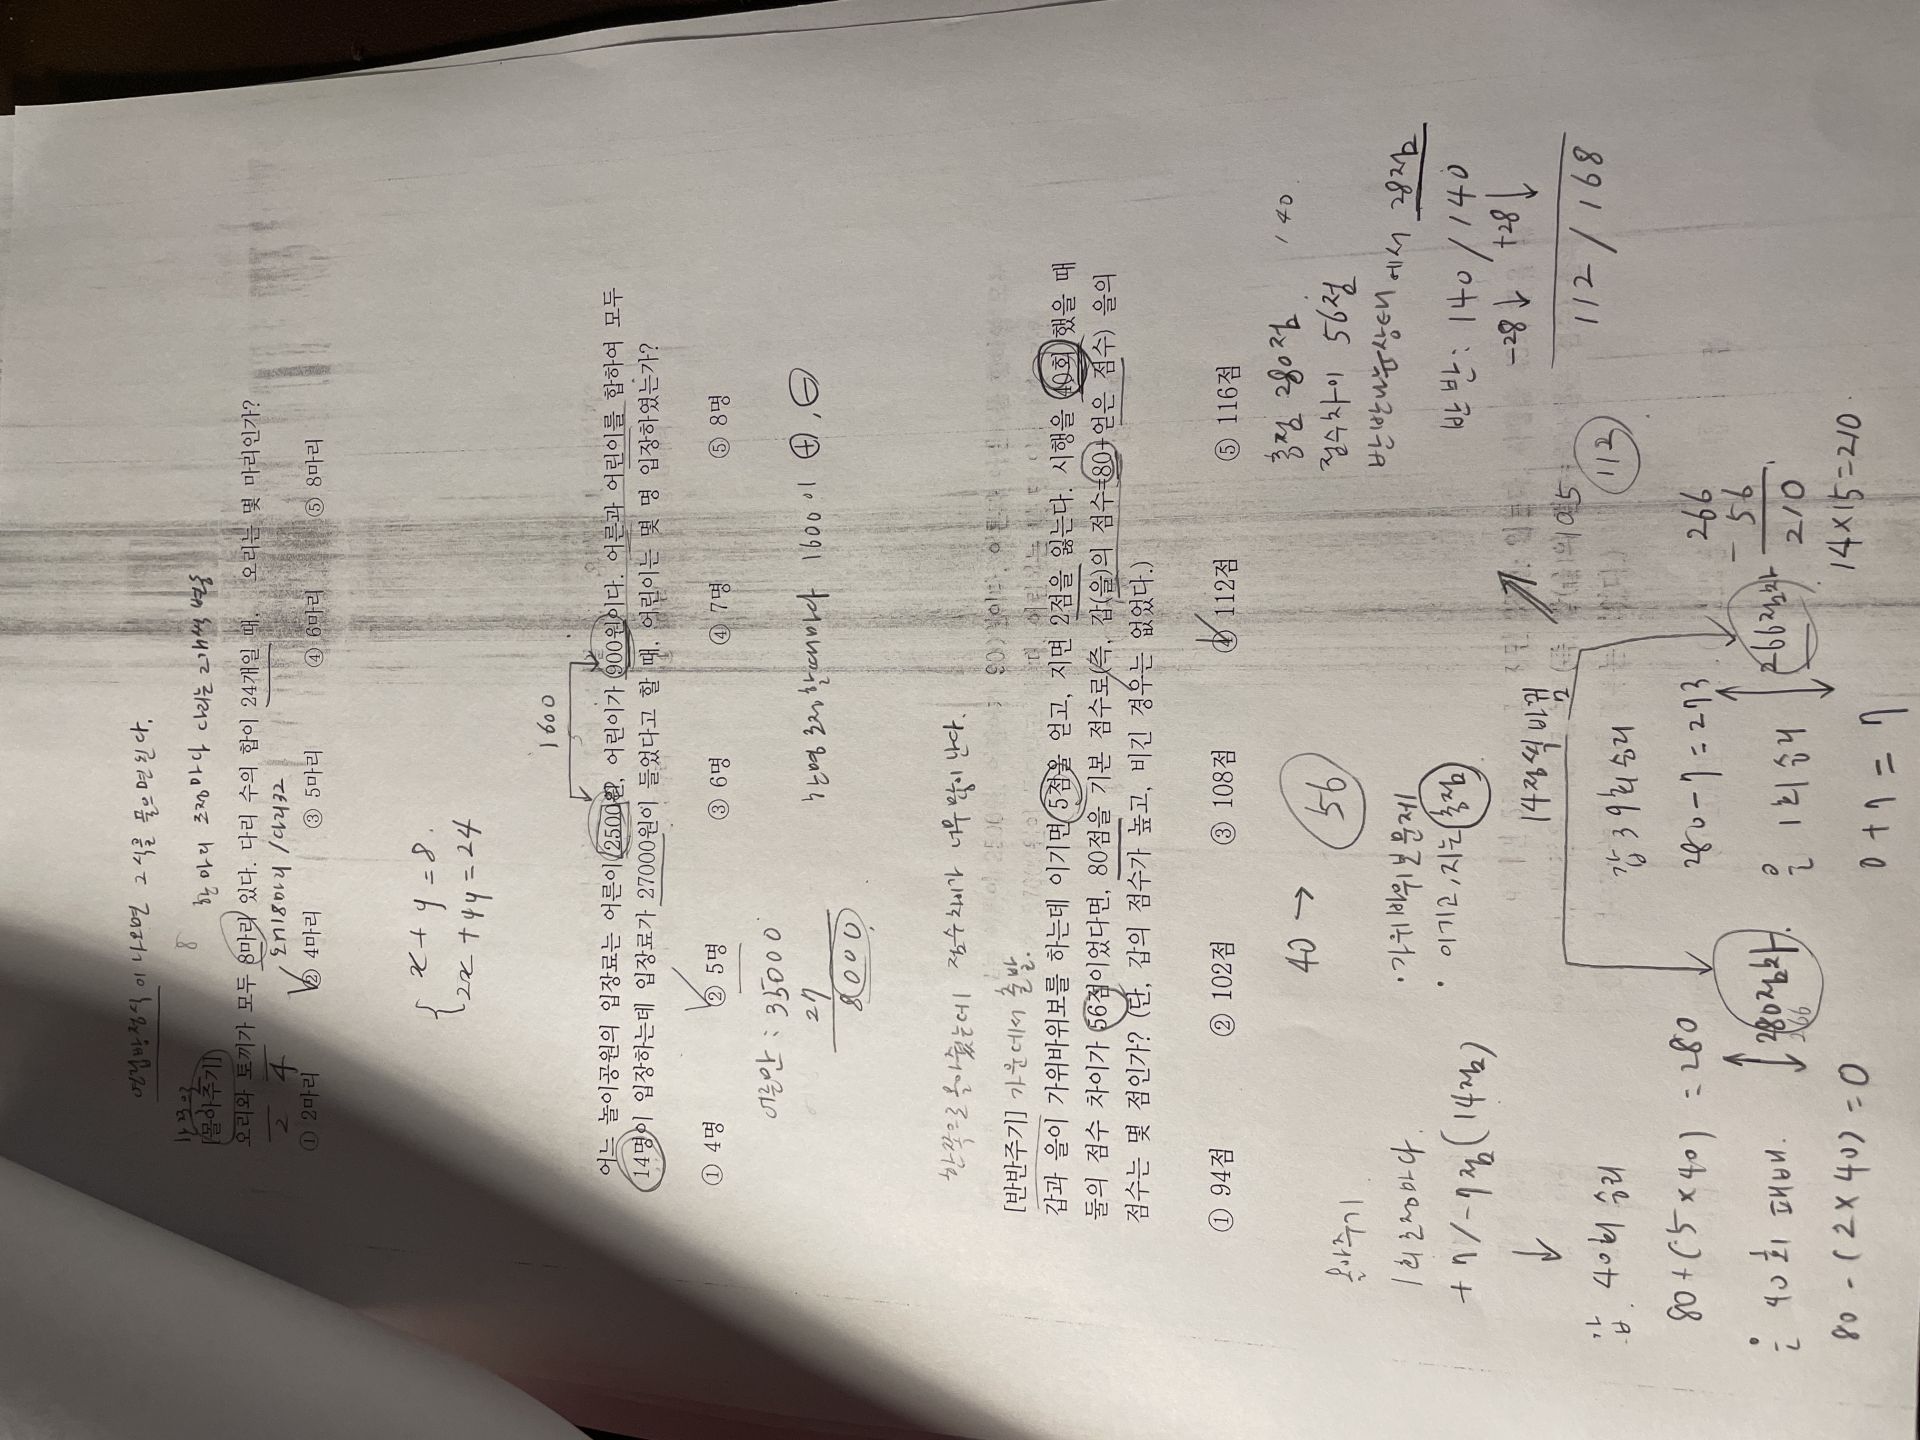 연립방정식이 나오면 2식을 풀으면된다.
한마리 조정마다 다리는 2개씩 변동
[몰아주기]
오리와 토끼가 모두 8마리 있다. 다리 수의 합이 24개일 때, 오리는 몇 마리인가?
2 4
① 2마리 ② 4마리 ③ 5마리 ④ 6마리 ⑤ 8마리
x + y = 8
2x + 4y = 24
1600
어느 놀이공원의 입장료는 어른이 2500원, 어린이가 900원이다. 어른과 어린이를 합하여 모두
14명이 입장하는데 입장료가 27000원이 들었다고 할 때, 어린이는 몇 명 입장하였는가?
① 4명 ② 5명 ③ 6명 ④ 7명 ⑤ 8명
어른만 : 35000
27
8000
한명 조정할때마다 1600이 +, -
한쪽으로 몰아줬는데 점수차이가 너무 많이 난다.
[반반주기] 가운데에서 출발.
갑과 을이 가위바위보를 하는데 이기면 5점을 얻고, 지면 2점을 잃는다. 시행을 40회 했을 때
둘의 점수 차이가 56점이었다면, 80점을 기본 점수로(즉, 갑(을)의 점수=80+얻은 점수) 을의
점수는 몇 점인가? (단, 갑의 점수가 높고, 비긴 경우는 없었다.)
① 94점 ② 102점 ③ 108점 ④ 112점 ⑤ 116점
40 → 56
· 가위바위보문제
· 이기고, 지는 총점
몰아주기
1회 조정마다
+7/-7점 (14점)
↓
갑 40회 승리
80+(5×40) = 280
280점차
을 40회 패배.
80-(2×40)=0
14점씩 바뀜
갑 39회 승리
280-7=273
266점차
을 1회 승리
0+7=7
266
- 56
210
14×15=210
112
총점 280점
점수차이 56점
반반나눈상태에서 28점
반반: 140/140
-28↓ +28↓
112/168